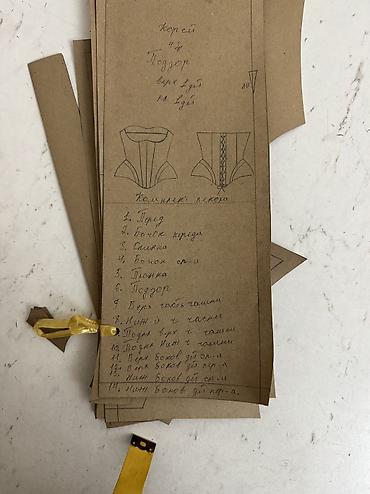 Корсет
Подзор
верх 2 дет
на 2 дет
Комплект лекал
1. Перед
2. Бочок переда
3. Спинка
4. Бочок сп-и
5. Планка
6. Подзор
7. Верх часть чашки
8. Ниж-я ч. чашки
9 Подкл верх ч чашки
10. Подкл ниж ч чашки
11. Верх боков дет сп-и
12. Верх боков дет пер-а
13. Ниж боков дет сп-и
14. Ниж боков дет пер-а.